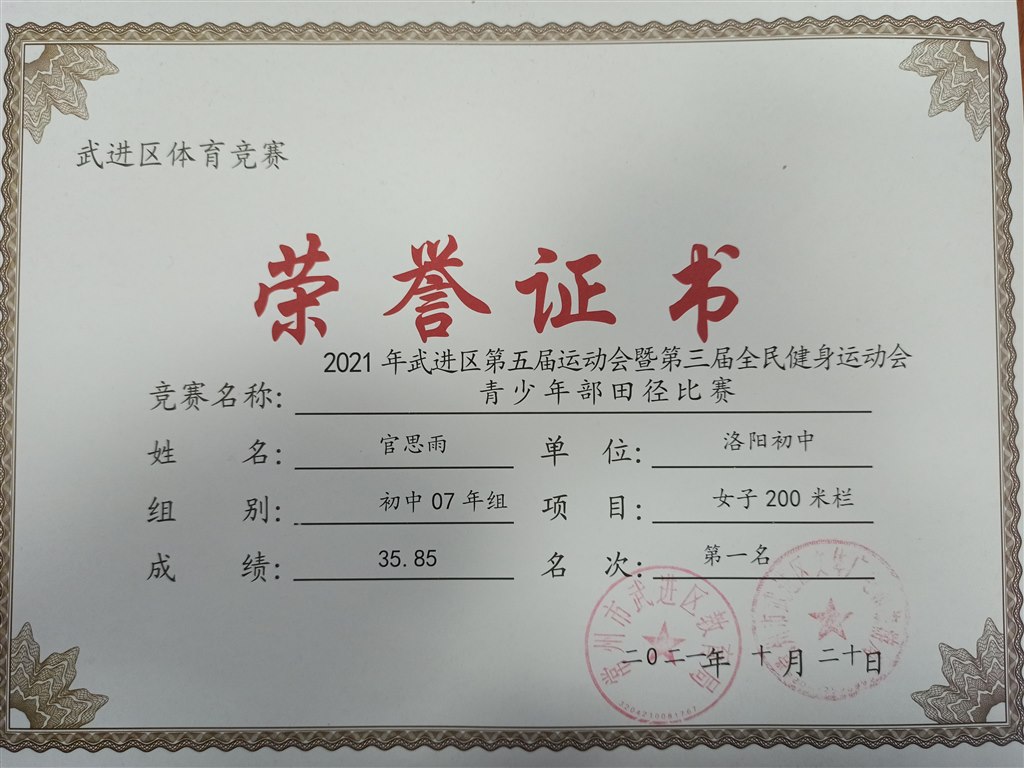 武进区体育竞赛
荣誉证书
竞赛名称: 2021年武进区第五届运动会暨第三届全民健身运动会
青少年部田径比赛
姓名: 官思雨 单位: 洛阳初中
组别: 初中07年组 项目: 女子200米栏
成绩: 35.85 名次: 第一名
二〇二一年 十月 二十日
常州市武进区教育局
3204210081761